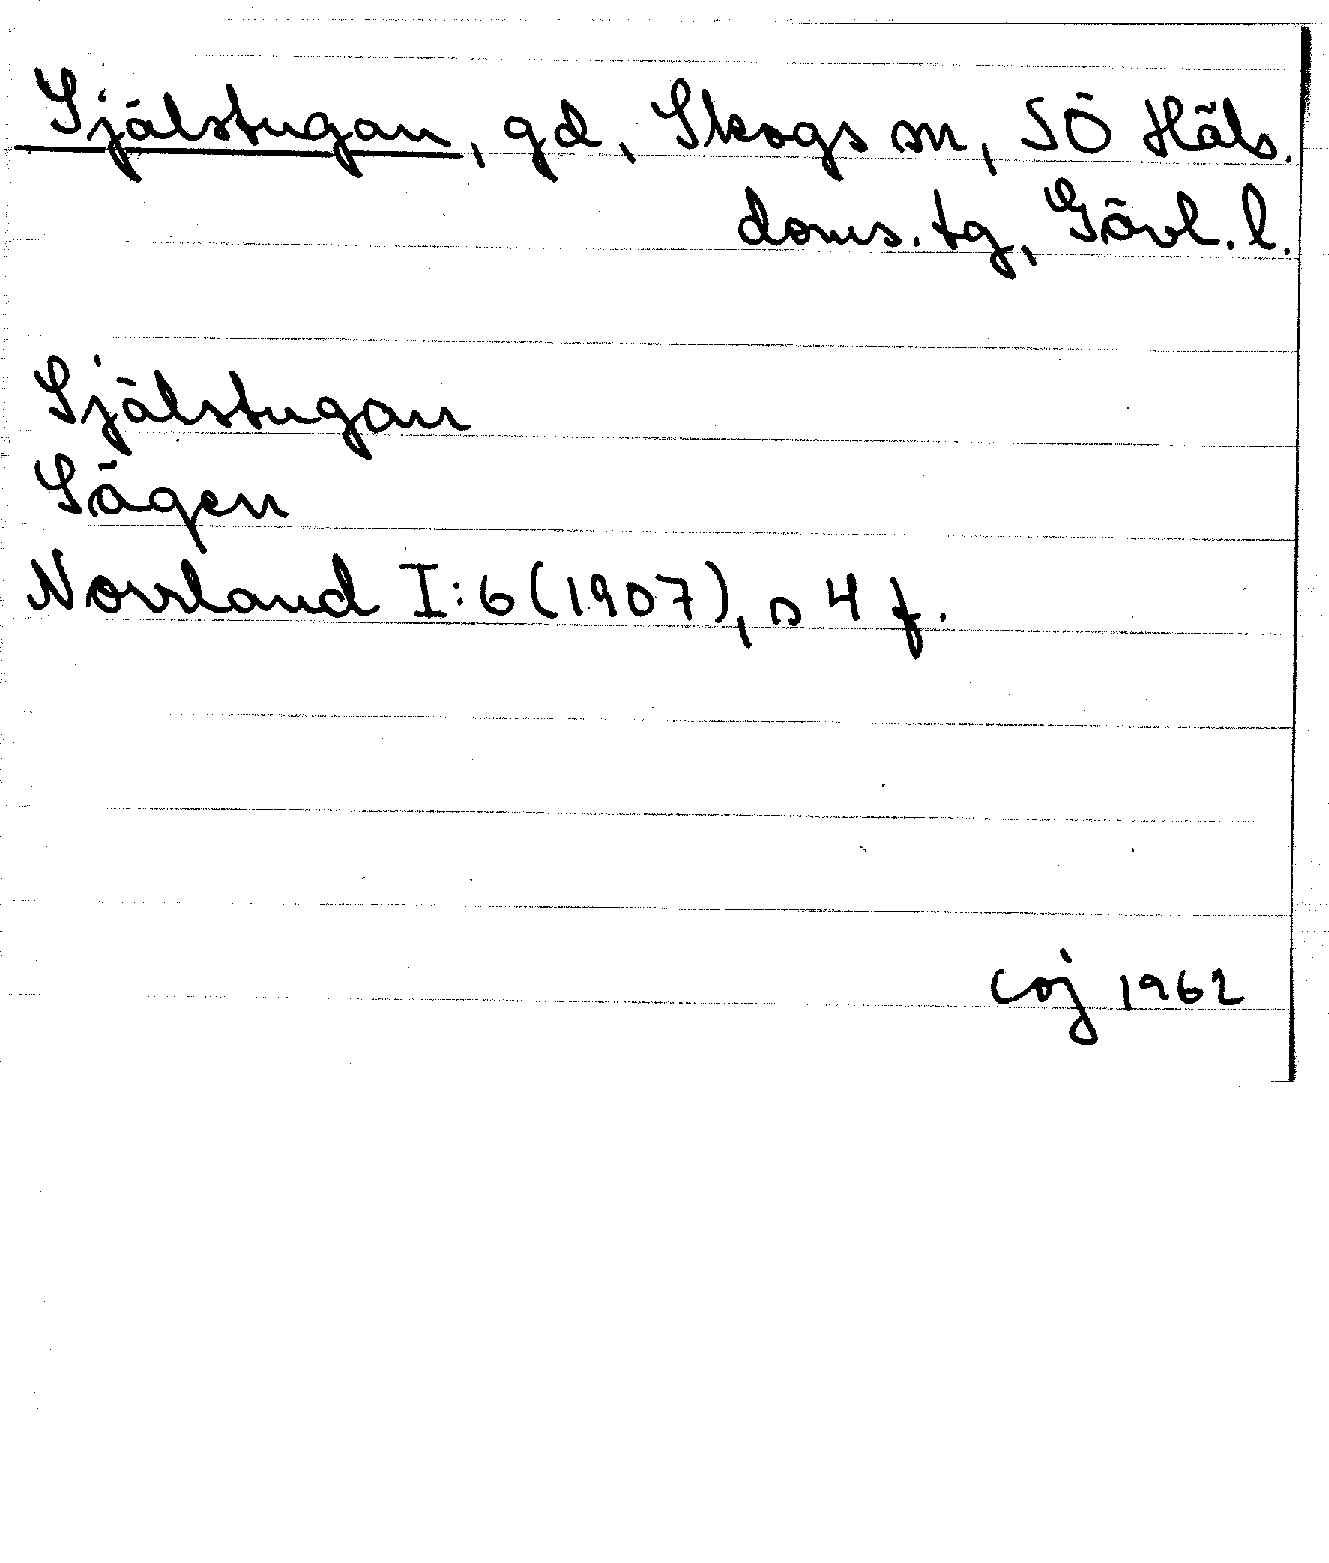 Själstugan, gd, Skogs sn, SÖ Häls.
doms. tg, Gävl. l.
Själstugan
Sägen
Norrland I:6 (1907), s 4 f.
coj 1962